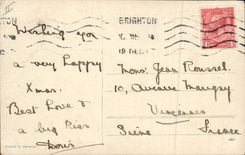 BRIGHTON
Wishing you
a very Happy
Xmas.
Best Love &
a big Kiss
Doris
Mons. Jean Roussel.
10, Avenue Marigny
Vincennes
Seine France